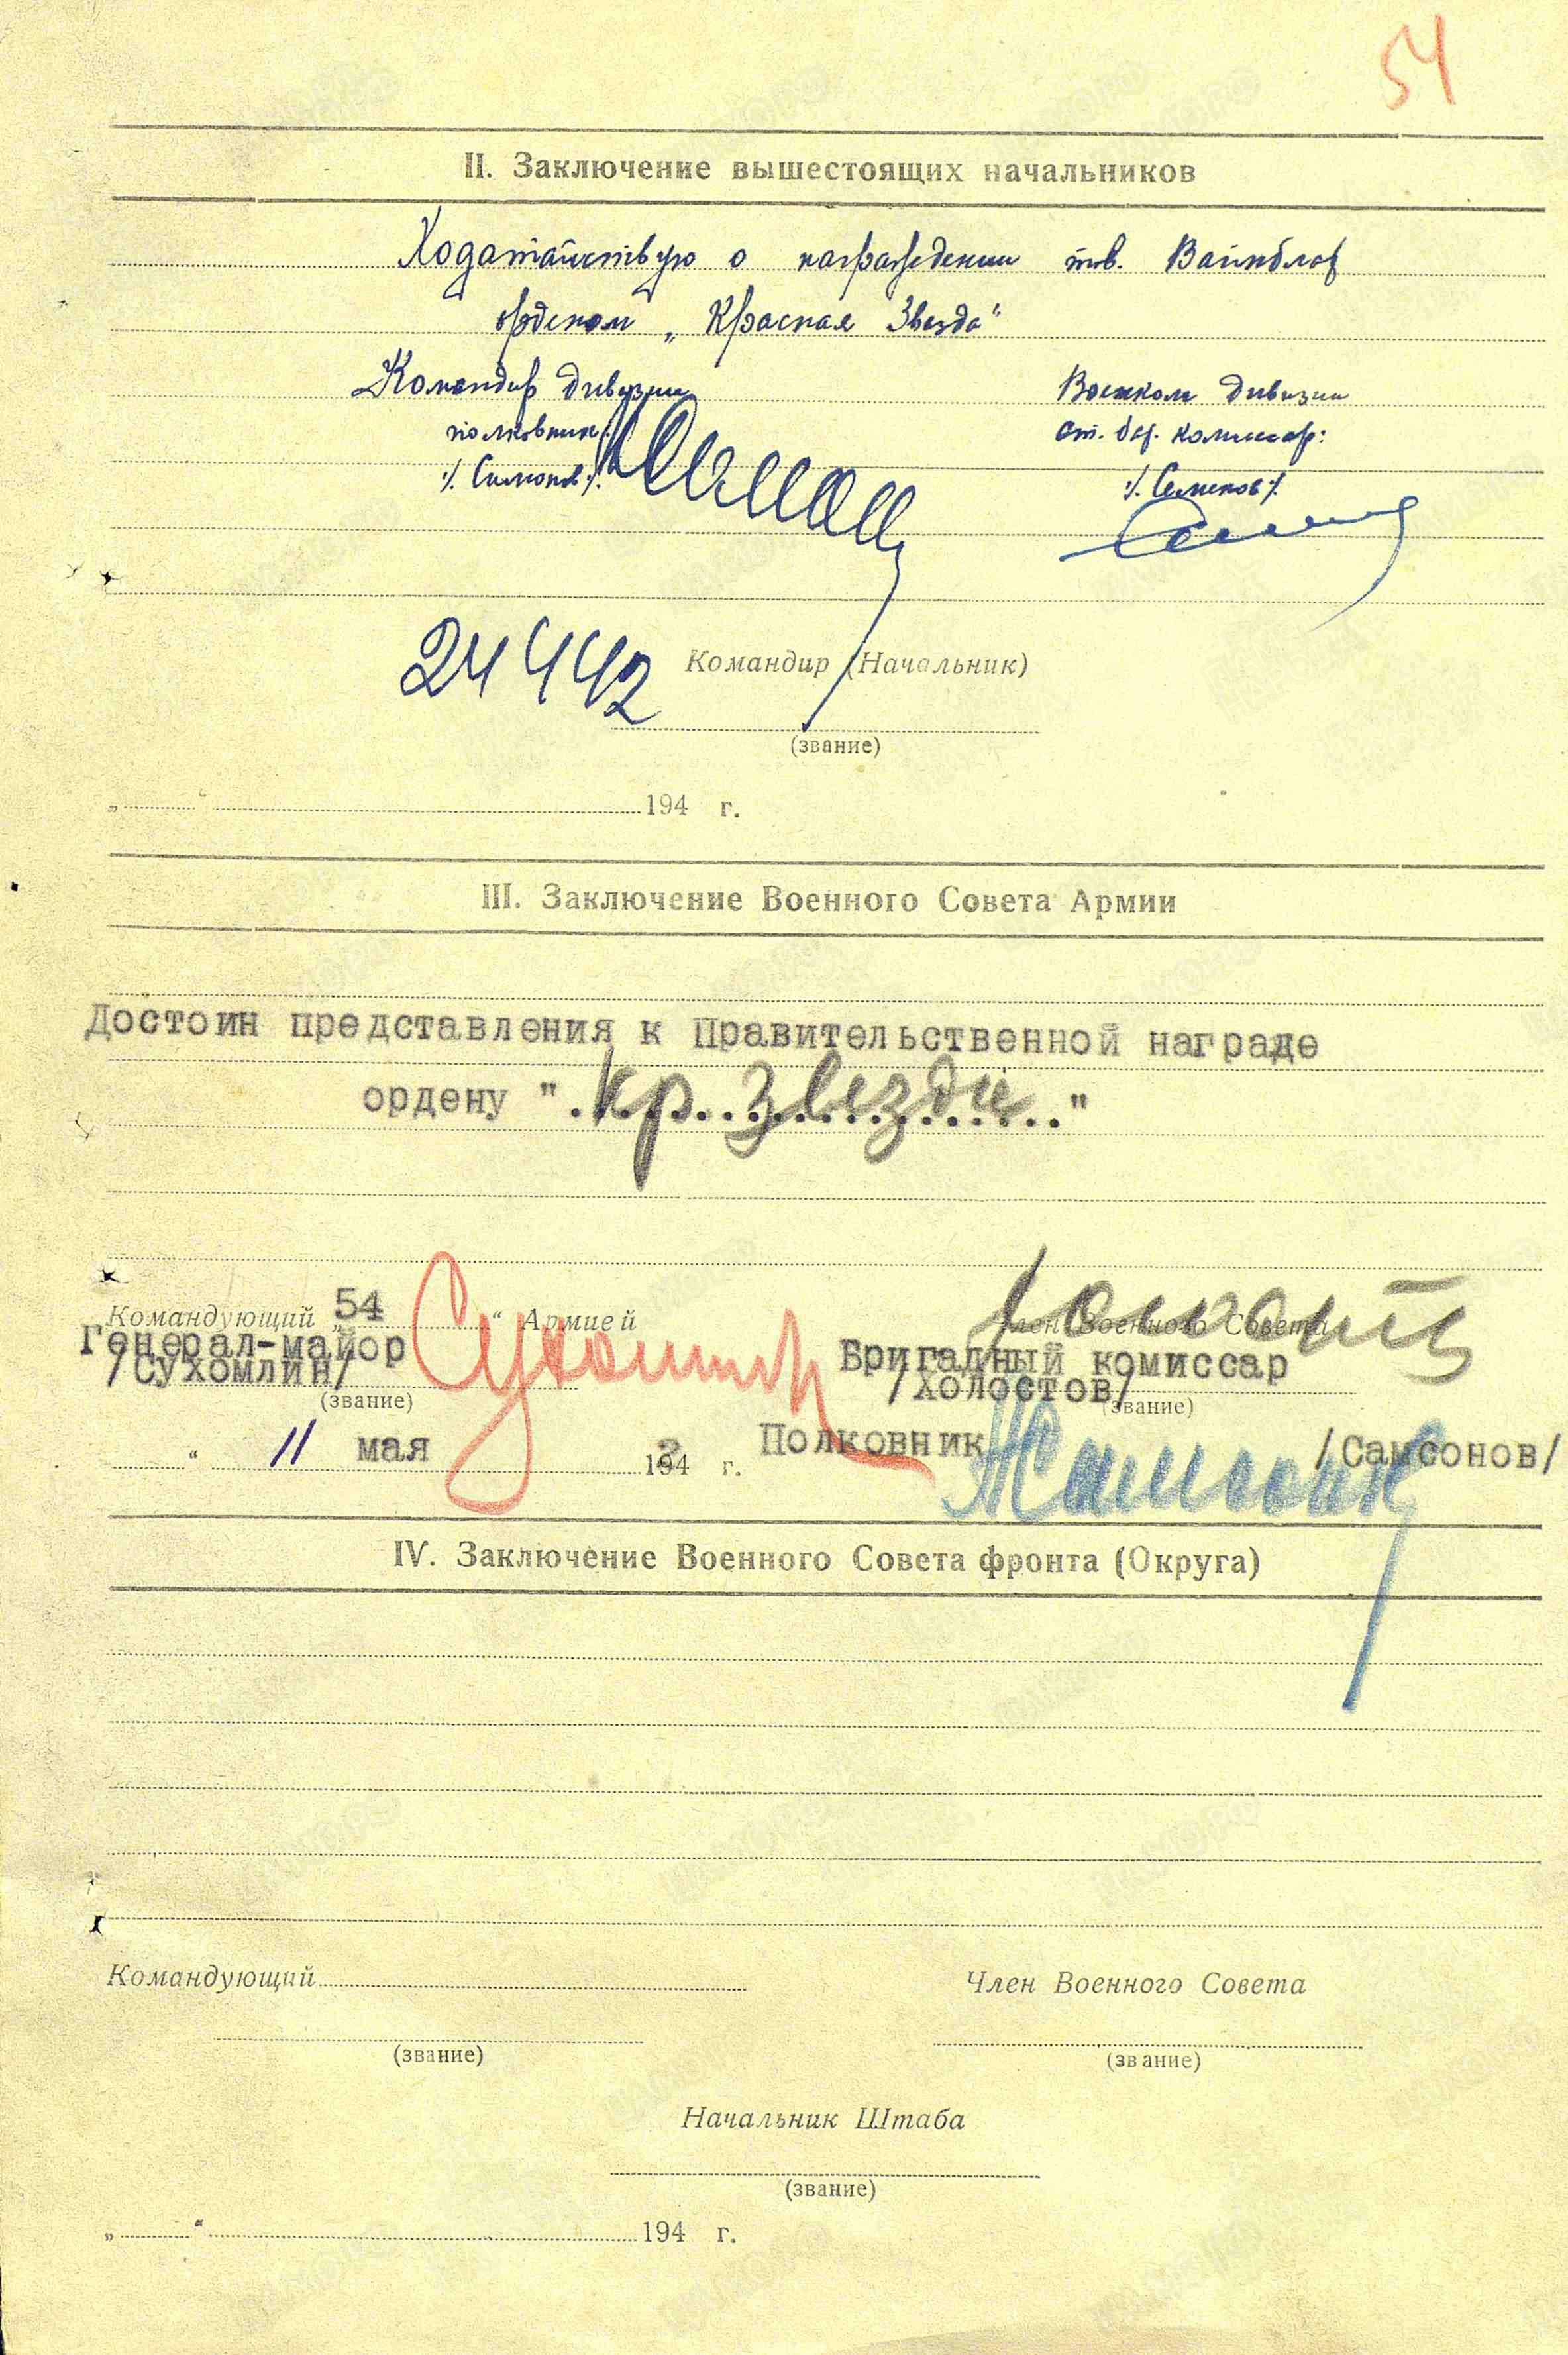 54
II. Заключение вышестоящих начальников
Ходатайствую о награждении тов. Вайнблат
орденом „Красная Звезда“
Командир дивизии
полковник:
/. Симонов /.
Военком дивизии
ст. бат. комиссар:
/. Семенов /.
24 4 42
Командир (Начальник)
(звание)
„ “ 194 г.
III. Заключение Военного Совета Армии
Достоин представления к Правительственной награде
ордену "Кр. Звезда"
Командующий „54“ Армией
Член Военного Совета
Генерал-майор
/Сухомлин/
Бригадный комиссар
/Холостов/
(звание)
(звание)
“ 11 мая 1942 г.
Полковник /Самсонов/
IV. Заключение Военного Совета фронта (Округа)
Командующий
Член Военного Совета
(звание)
(звание)
Начальник Штаба
(звание)
„ “ 194 г.